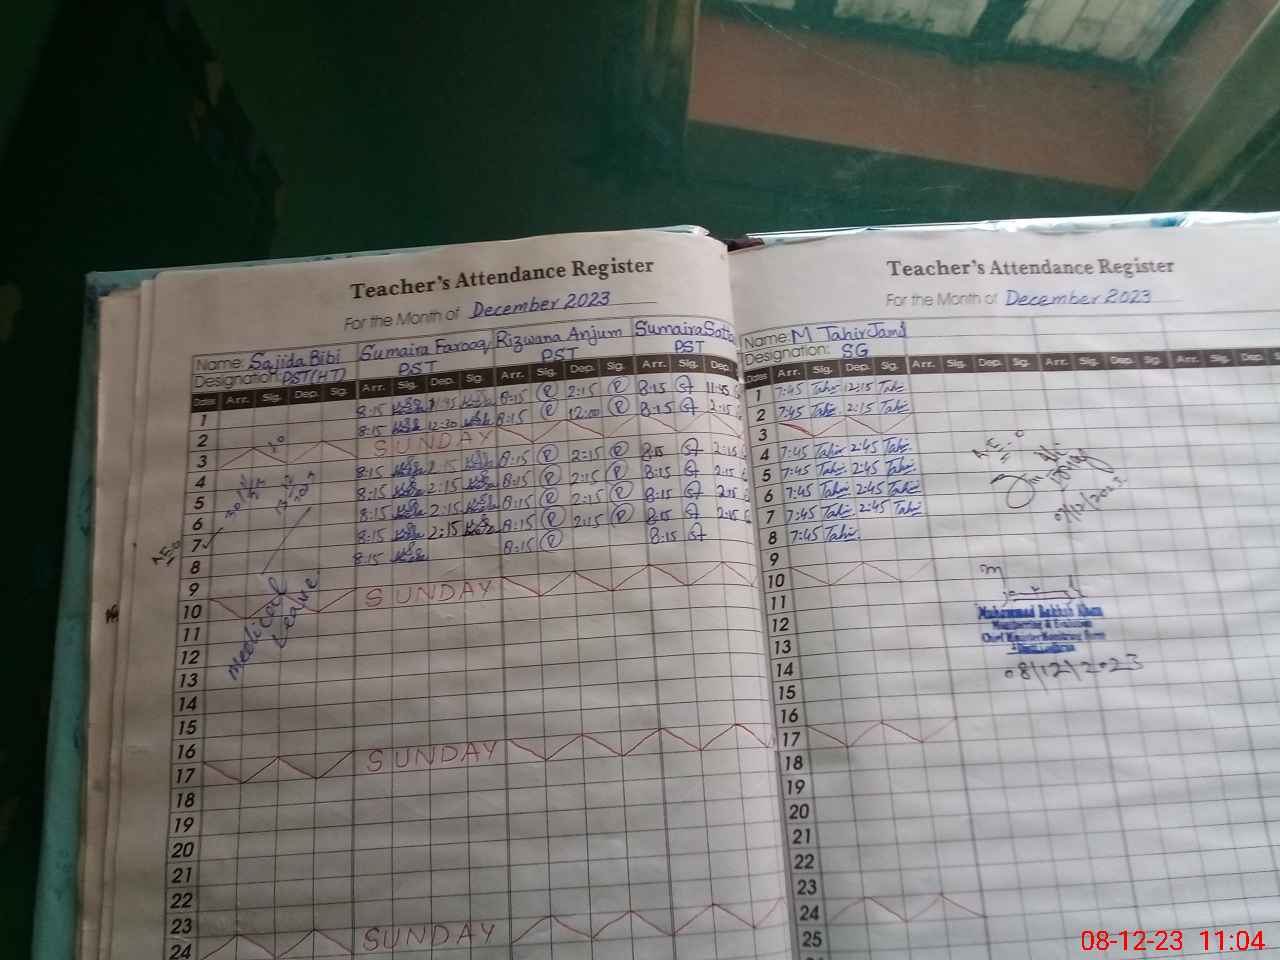 Teacher's Attendance Register
For the Month of December 2023
Name: Sajida Bibi Sumaira Farooq Rizwana Anjum Sumaira Satta
Designation: PST(HT) PST PST PST
Dates Arr. Sig. Dep. Sig. Arr. Sig. Dep. Sig. Arr. Sig. Dep. Sig. Arr. Sig. Dep.
1 8:15 11:45 8:15 R 2:15 R 8:15 11:45
2 8:15 12:30 8:15 R 12:00 R 8:15 2:15
3 SUNDAY
4 8:15 2:15 8:15 R 2:15 R 8:15 2:15
5 8:15 2:15 8:15 R 2:15 R 8:15 2:15
6 8:15 2:15 8:15 R 2:15 R 8:15 2:15
7 8:15 2:15 8:15 R 2:15 R 8:15 2:15
8 8:15 8:15 R 8:15
9
10 SUNDAY
11
12
13
14
15
16
17 SUNDAY
18
19
20
21
22
23
24 SUNDAY
medical leave
Teacher's Attendance Register
For the Month of December 2023
Name: M Tahir Jamil
Designation: SG
Dates Arr. Sig. Dep. Sig. Arr. Sig. Dep. Sig. Arr. Sig. Dep. Sig. Arr. Sig. Dep.
1 7:45 Tahir 12:15 Tahir
2 7:45 Tahir 2:15 Tahir
3
4 7:45 Tahir 2:45 Tahir
5 7:45 Tahir 2:45 Tahir
6 7:45 Tahir 2:45 Tahir
7 7:45 Tahir 2:45 Tahir
8 7:45 Tahir
9
10
11
12
13
14
15
16
17
18
19
20
21
22
23
24
25
07/12/2023
Muhammad Bakhsh Khan
Monitoring & Evaluation
Chief Minister Monitoring Force
08/12/2023
08-12-23 11:04